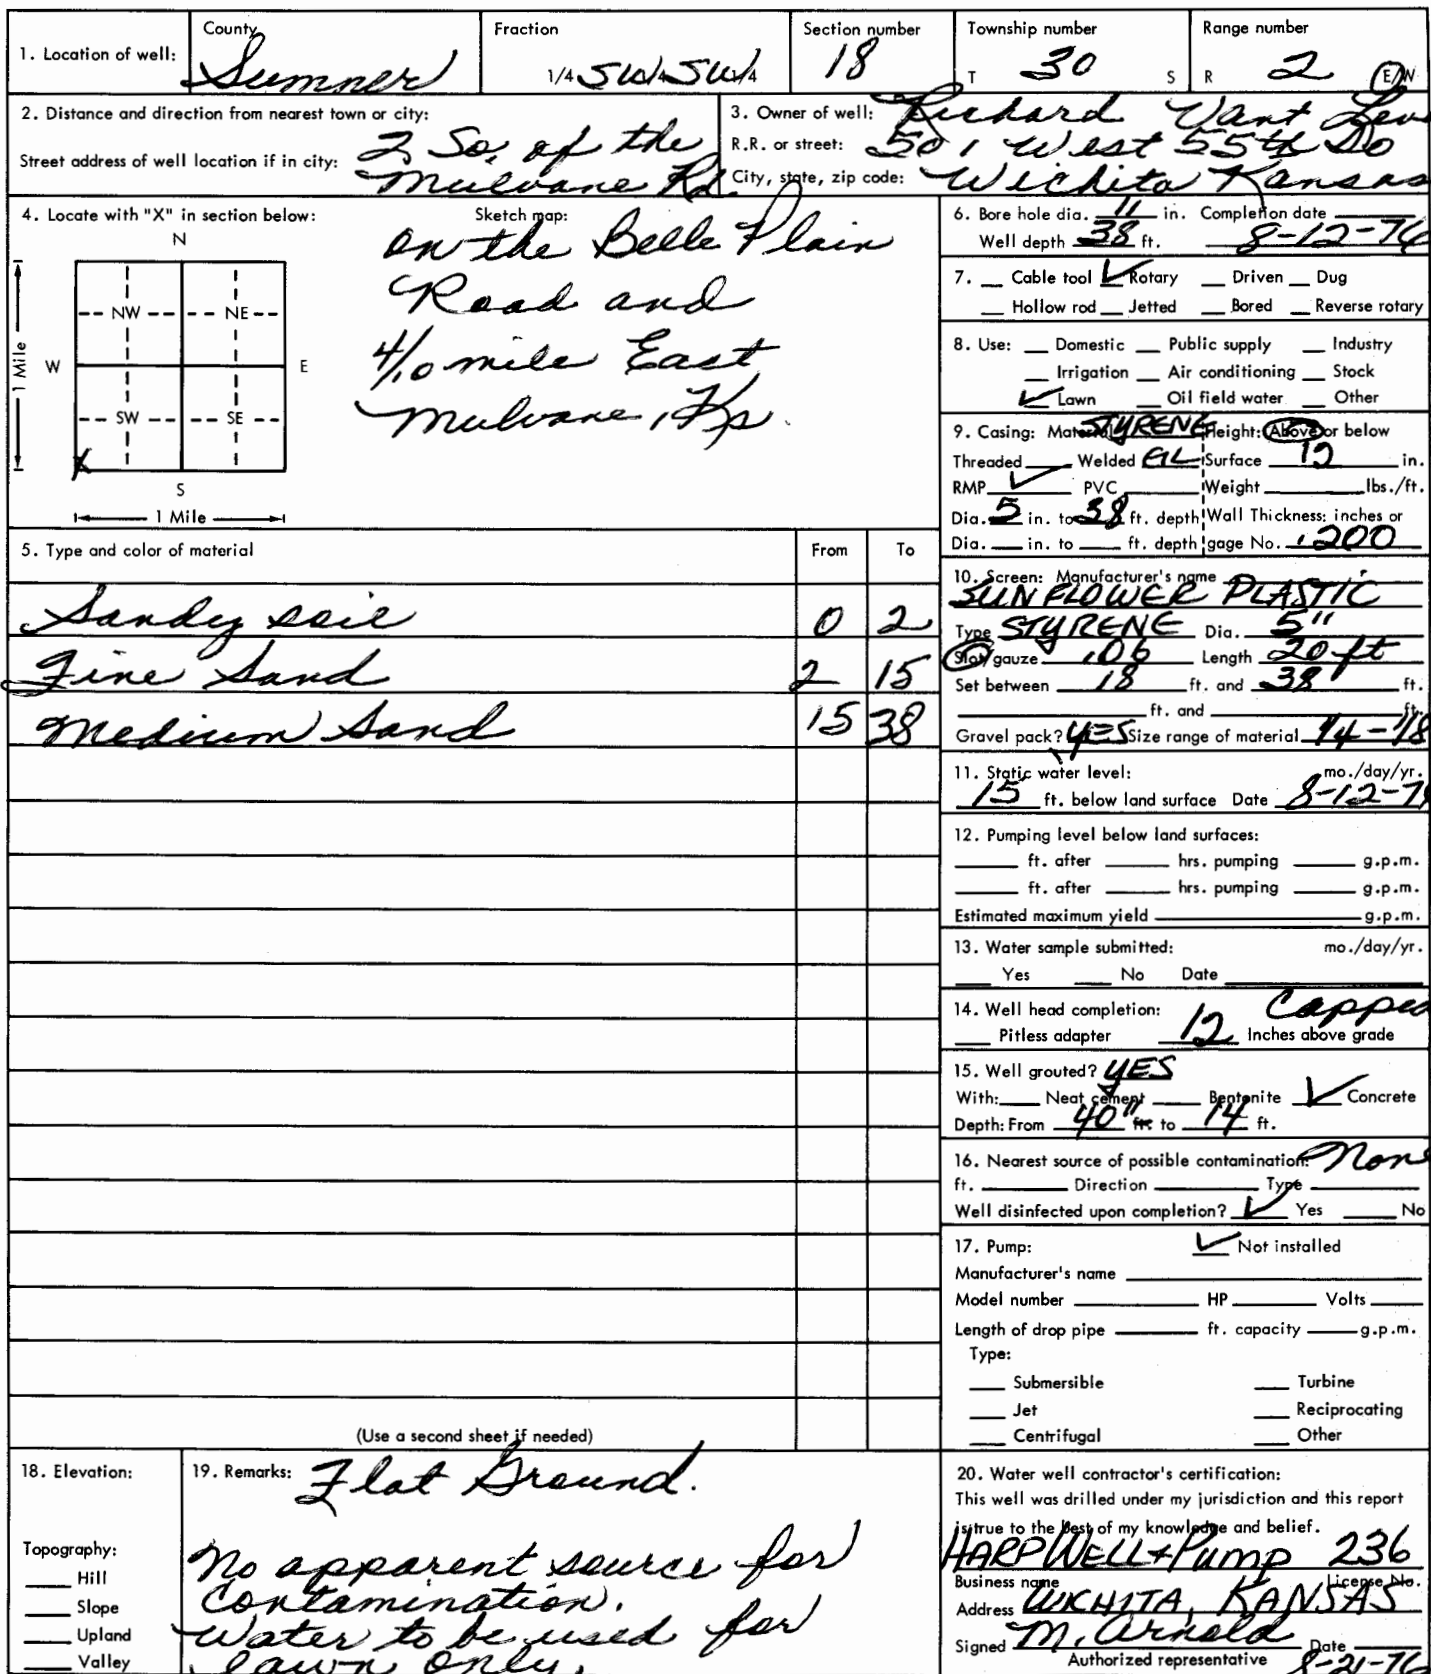 1. Location of well: County Sumner Fraction 1/4 SW 1/4 SW 1/4 Section number 18 Township number T 30 S Range number R 2 E/W
2. Distance and direction from nearest town or city: 2 So. of the
Street address of well location if in city: Mulvane Rd.
3. Owner of well: Richard Vant
R.R. or street: 501 West 55th So
City, state, zip code: Wichita Kansas
4. Locate with "X" in section below:
N
NW NE
W E
SW SE
X
S
1 Mile
1 Mile
Sketch map:
on the Belle Plain
Road and
4/10 mile East
Mulvane, Ks.
5. Type and color of material From To
Sandy soil 0 2
Fine Sand 2 15
Medium Sand 15 38
(Use a second sheet if needed)
6. Bore hole dia. 11 in. Completion date
Well depth 38 ft. 8-12-76
7. Cable tool ✓ Rotary Driven Dug
Hollow rod Jetted Bored Reverse rotary
8. Use: Domestic Public supply Industry
Irrigation Air conditioning Stock
✓ Lawn Oil field water Other
9. Casing: Material STYRENE Height: Above or below
Threaded Welded GL Surface 12 in.
RMP ✓ PVC Weight lbs./ft.
Dia. 5 in. to 38 ft. depth Wall Thickness: inches or
Dia. in. to ft. depth gage No. .200
10. Screen: Manufacturer's name
SUNFLOWER PLASTIC
Type STYRENE Dia. 5"
Slot/gauze .06 Length 20 ft
Set between 18 ft. and 38 ft.
ft. and ft.
Gravel pack? YES Size range of material 1/4 - 1/8
11. Static water level: mo./day/yr.
15 ft. below land surface Date 8-12-76
12. Pumping level below land surfaces:
ft. after hrs. pumping g.p.m.
ft. after hrs. pumping g.p.m.
Estimated maximum yield g.p.m.
13. Water sample submitted: mo./day/yr.
Yes No Date
14. Well head completion: Capped
Pitless adapter 12 Inches above grade
15. Well grouted? YES
With: Neat cement Bentonite ✓ Concrete
Depth: From 40" ft. to 14 ft.
16. Nearest source of possible contamination: None
ft. Direction Type
Well disinfected upon completion? ✓ Yes No
17. Pump: ✓ Not installed
Manufacturer's name
Model number HP Volts
Length of drop pipe ft. capacity g.p.m.
Type:
Submersible Turbine
Jet Reciprocating
Centrifugal Other
18. Elevation:
Topography:
Hill
Slope
Upland
Valley
19. Remarks: Flat Ground.
No apparent source for
Contamination.
Water to be used for
lawn only.
20. Water well contractor's certification:
This well was drilled under my jurisdiction and this report
is true to the best of my knowledge and belief.
HARP WELL + Pump 236
Business name License No.
Address WICHITA, KANSAS
Signed M. Arnold Date 8-21-76
Authorized representative